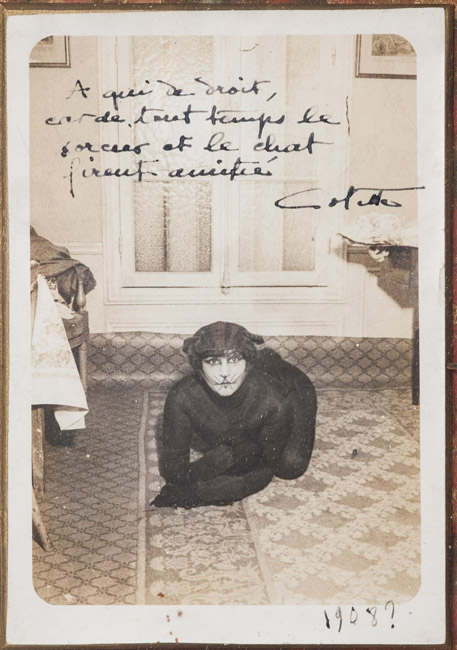 A qui de droit,
car de tout temps le
sorcier et le chat
firent amitié
Colette
1908?